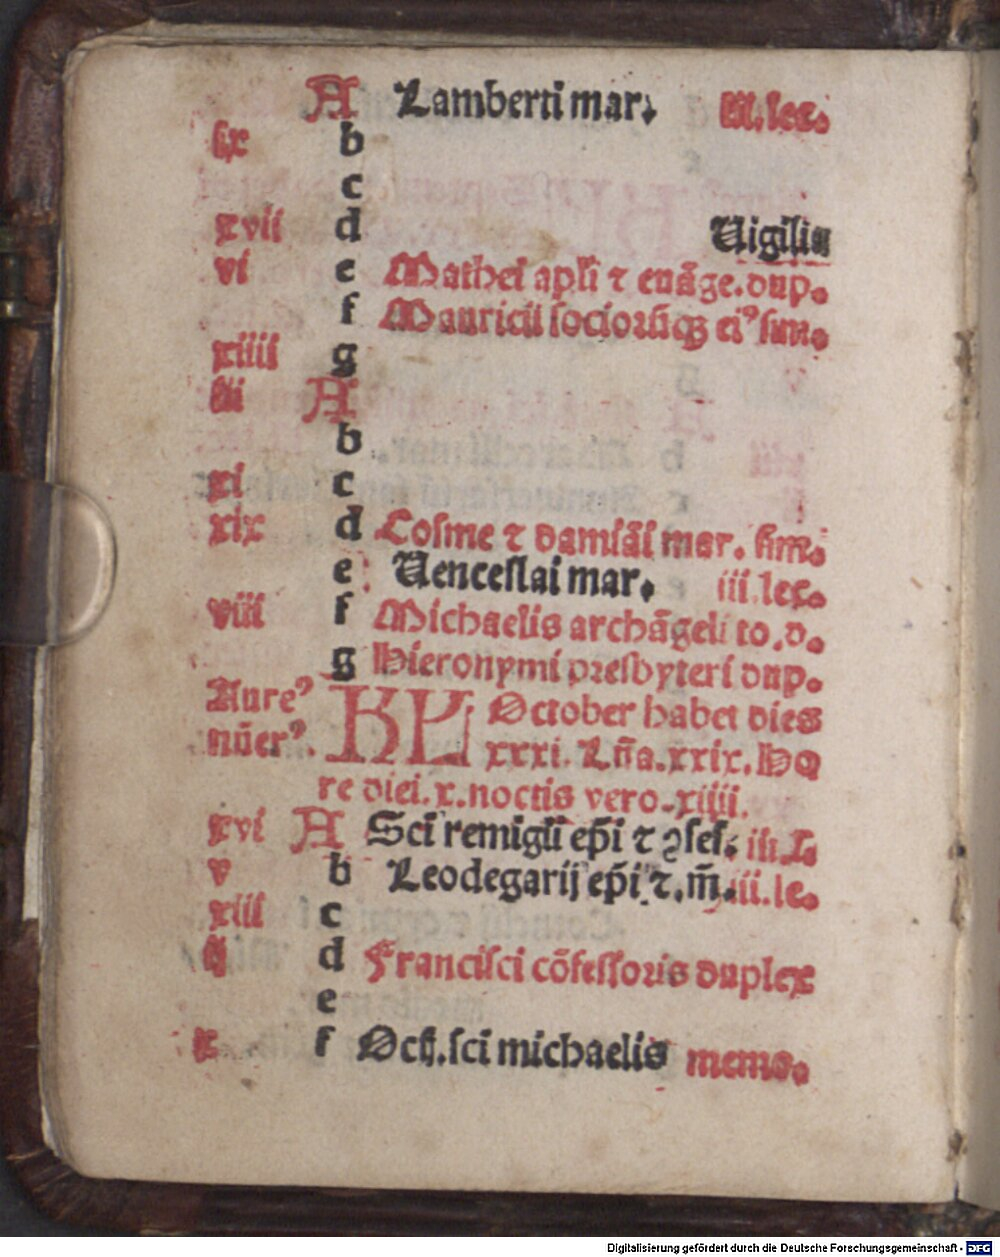 A Lamberti mar. iii. lec.
ix b
c
xvii d Uigilia
vi e Mathei apl'i ⁊ euāge. dup.
f Mauricii sociorūqꝫ ei⁹ sim.
xiiii g
iii A
b
xi c
xix d Cosme ⁊ damiāi mar. sim.
e Uenceslai mar. iii. lec.
viii f Michaelis archāgeli to. d.
g Hieronymi presbyteri dup.
Aure⁹ KL October habet dies
nūer⁹. xxxi. Lūa. xxix. Ho
re diei. x. noctis vero. xiiii.
xvi A Sci remigii ep̄i ⁊ ꝯfes. iii. L.
v b Leodegarij ep̄i ⁊. m̄. iii. le.
xiii c
ij d Francisci cōfessoris duplex
e
x f Octſ. sci michaelis memo.
Digitalisierung gefördert durch die Deutsche Forschungsgemeinschaft - DFG